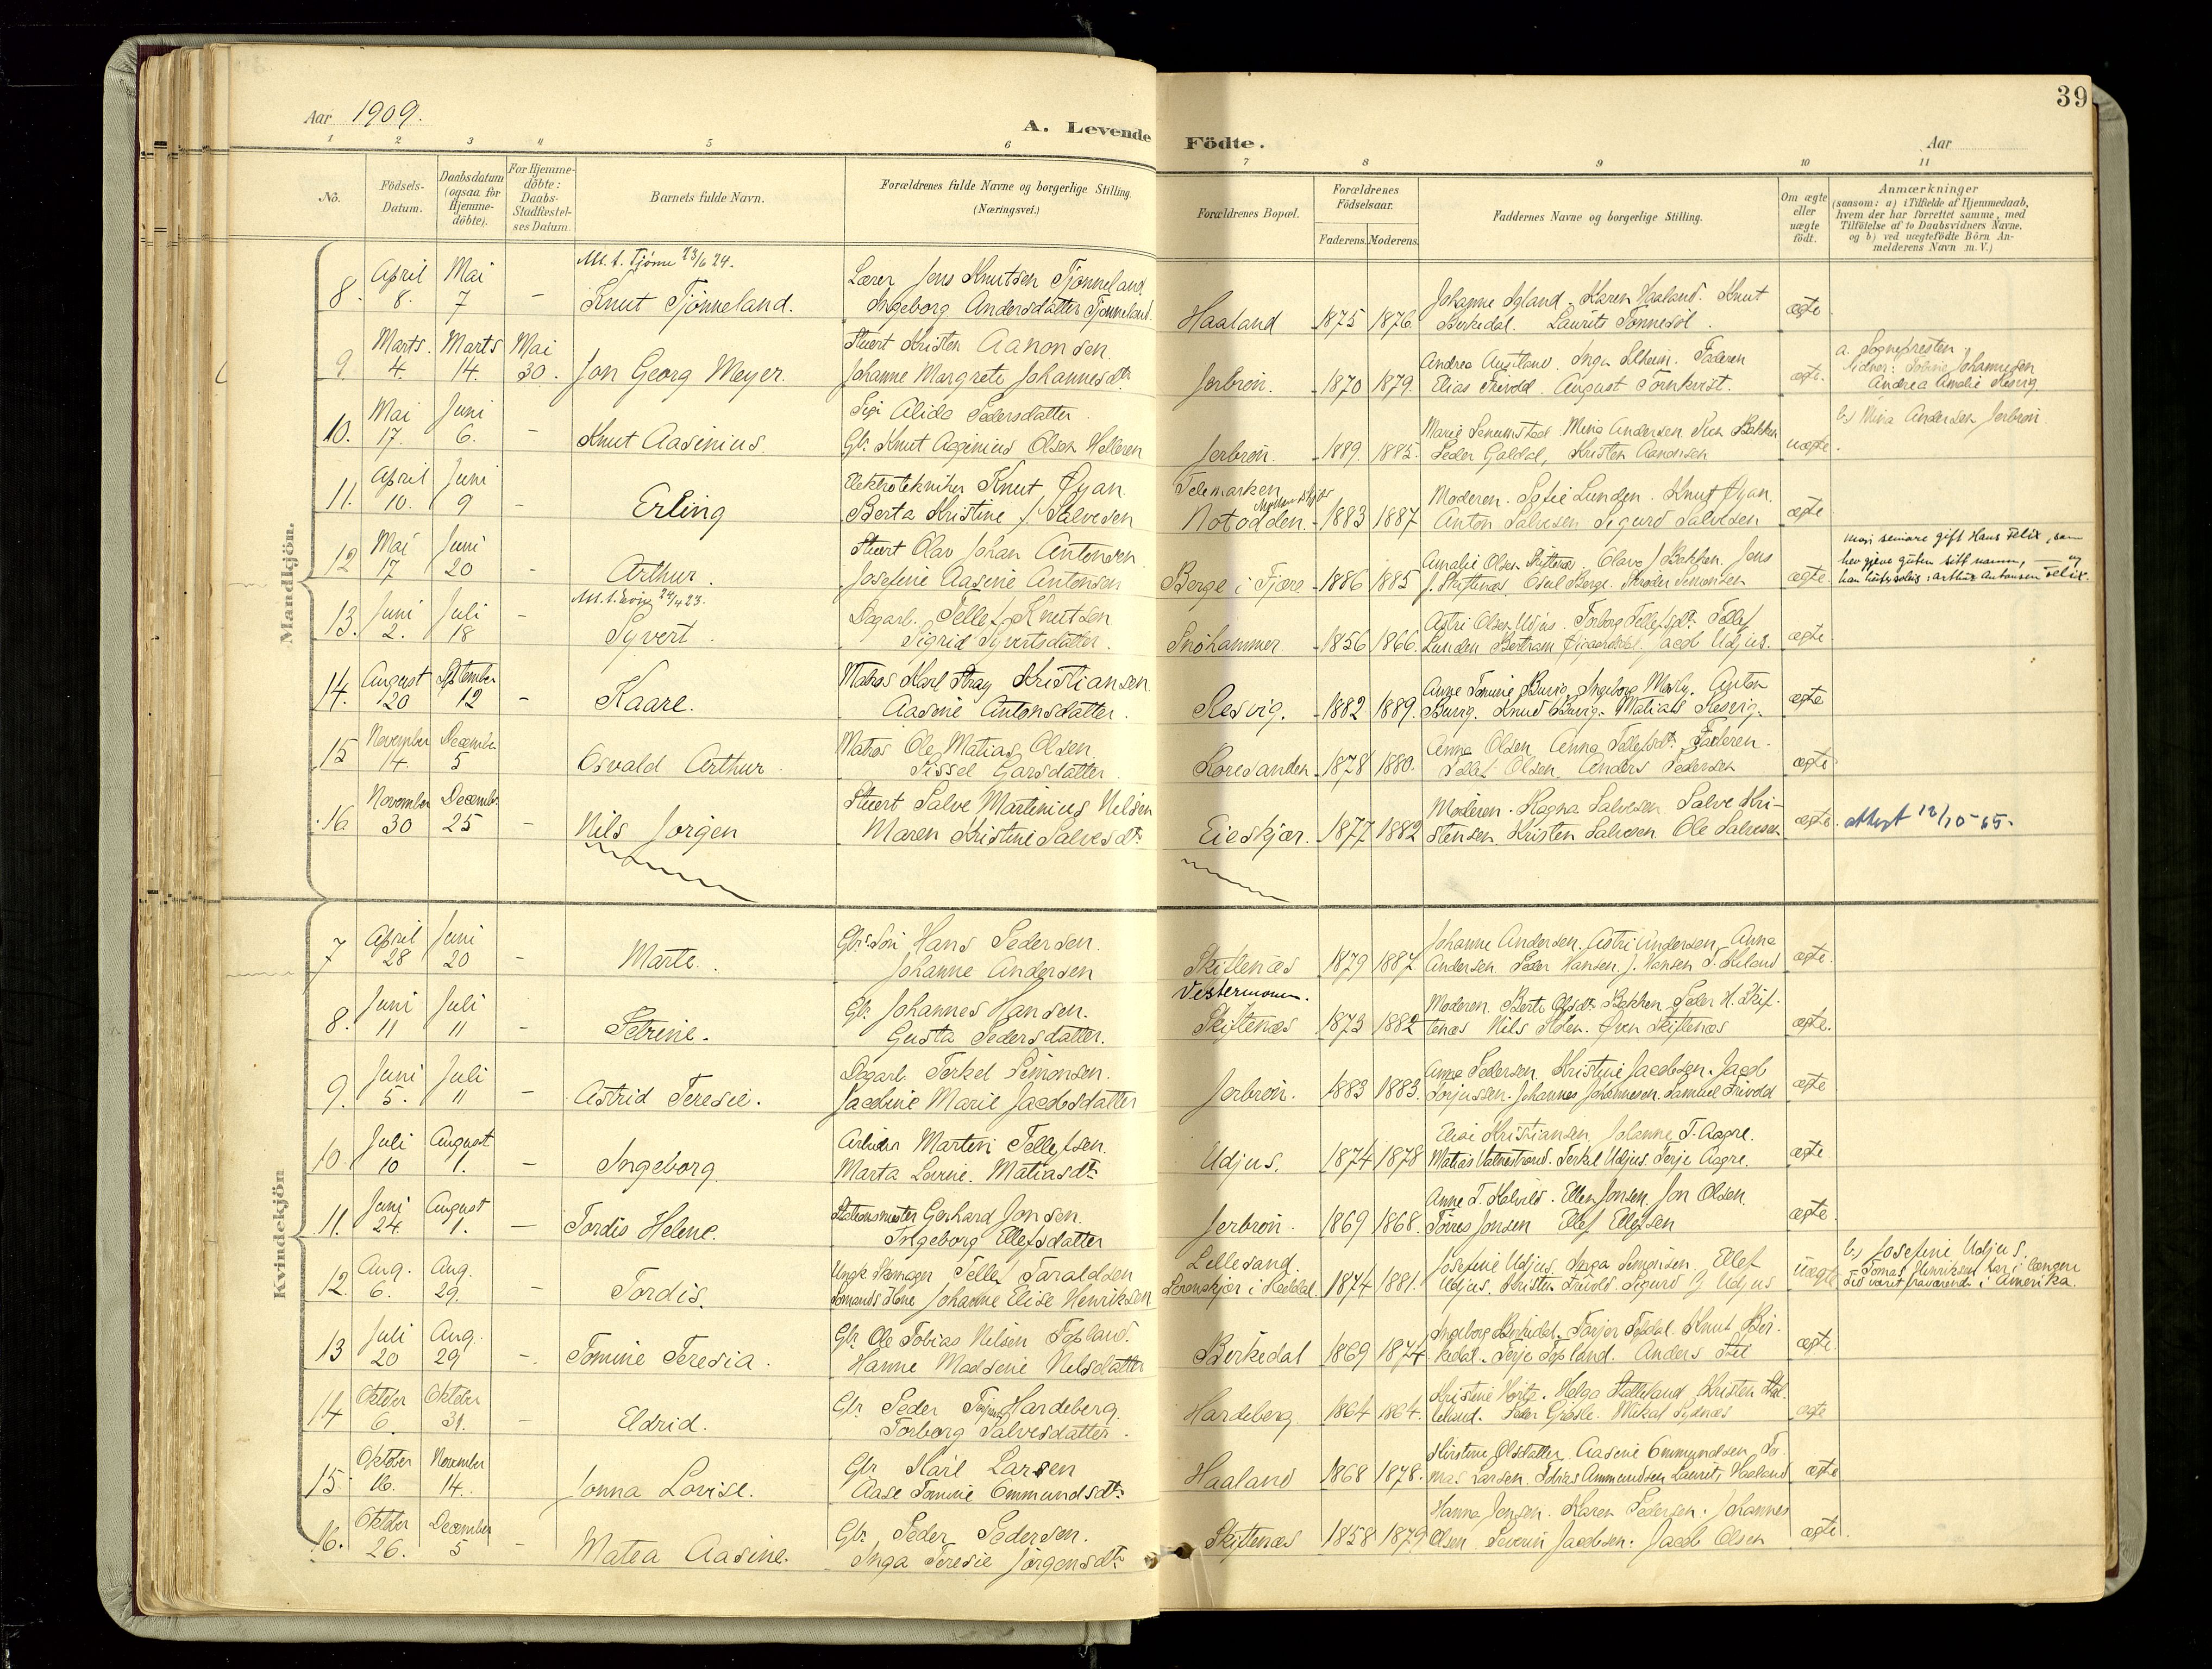 39
Aar 1909.
A. Levende Födte.
Aar
1 2 3 4 5 6 7 8 9 10 11
No.
Födsels-Datum.
Daabsdatum (ogsaa for Hjemme-döbte).
For Hjemme-döbte: Daabs-Stadfæstel-ses Datum.
Barnets fulde Navn.
Forældrenes fulde Navne og borgerlige Stilling. (Næringsvei.)
Forældrenes Bopæl.
Forældrenes Födselsaar.
Faderens. Moderens.
Faddernes Navne og borgerlige Stilling.
Om ægte eller uægte födt.
Anmærkninger
(saasom: a) i Tilfælde af Hjemmedaab, hvem der har forrettet samme, med Tilföielse af to Daabsvidners Navne, og b) ved uægtefödte Börn An-melderens Navn m. V.)
Mandkjön.
Att. t. Tjömø 23/6 24.
8. April 8. Mai 7 - Knut Tjönneland.
Lærer Jens Knutsen Tjönneland
Ingeborg Andersdatter Tjönneland.
Haaland 1875 1876.
Johanne Igland. Karen Haaland. Knut
Berkedal. Laurits Tönnesöl. ægte
9 Marts 4. Marts 14. Mai 30. Jon Georg Meyer.
Stuert Kristen Aanonsen.
Johanne Margrete Johannesdtr
Jerbrön. 1870 1879.
Faderen
Elias Trivold. August Törnkvist. ægte.
a. Sognepresten
Andrea Amalie Resvig
10. Mai 17. Juni 6. - Knut Aasinius.
Pige Alida Pedersdatter
Gbr. Knut Olsen Helleren
Jerbrön. 1889. 1885.
Mina Andersen
Peder Galdal, Kristen Aanonsen uægte.
b.) Mina Andersen Jerbrön
11. April 10. Juni 9 - Erling
Elektrotekniker Knut Öyan.
Berta Kristine J. Salvesen
Telemarken
Notodden. 1883 1887
Moderen. Sofie Lunden. Knut Öyan.
Anton Salvesen Sigurd Salvesen ægte
12 Mai 17 Juni 20 - Arthur.
Stuert Olav Johan Antonsen.
Josefine Aasine Antonsen
Berge i Fjære 1886 1885
Amalie Olsen Skiftenæs. Olava J. Bakken. Jens
J. Skiftenæs. ægte.
mori seinare gift Hans Felix, som
hev gjeve guten sitt namn, og
han heiter soleis: Arthur Antonsen Felix.
13. Juni 2. Juli 18 Syvert.
Dagarb. Tellef Knutsen
Sigrid Syvertsdatter.
Snöhammer 1856 1866.
Astri Olsen Udjus. Torborg Tellefsdtr. Tellef
Lunden Jacob Udjus. ægte.
14. August 20 September 12 - Kaare.
Matros Karl Stray Kristiansen
Aasine Antonsdatter.
Resvig. 1882 1889.
Ingeborg Mosby. Anton
Matias Resvig. ægte
15 November 14. December 5 Osvald Arthur
Matros Ole Matias Olsen.
Sissel Garsdatter
Koresanden 1878 1880.
Anna Olsen. Anna Tellefsdtr. Faderen.
Tellef Olsen. Anders Pedersen ægte
16 November 30 December 25 - Nils Jörgen
Stuert Salve Martinius Nilsen
Maren Kristine Salvesdtr
Eieskjær. 1877 1882
Moderen. Ragna Salvesen. Salve Kri-
stensen. Kristen Salvesen. Ole Salvesen ægte.
attest 12/10-65.
Kvindekjön
7 April 28 Juni 20 - Marte.
Gbr.sön Hans Pedersen.
Johanne Andersen
Skiftenæs 1879 1887.
Johanne Andersen. Astri Andersen. Anne
Andersen. Peder Hansen. J. Hansen ægte.
8. Juni 11 Juli 11 - Petrine.
Gbr Johannes Hansen.
Gusta Pedersdatter.
Vestermoen.
Skiftenæs 1873 1882
Moderen. Berte Olsdtr. Bakken. Peder H. Skif-
tenæs Sven Skiftenæs ægte.
9. Juni 5. Juli 11 - Astrid Teresie.
Dagarb. Terkel Simonsen.
Jacobine Marie Jacobsdatter
Jerbrön. 1883 1883.
Anne Pedersen. Kristine Jacobsen. Jacob
Torjussen. Johannes Johannesen. Samuel Trivold ægte
10. Juli 10 August 1. - Ingeborg.
Arbeider Martin Tellefsen.
Marta Lovise. Matiasdtr
Udjus. 1874 1878
Elise Kristiansen. Johanne T. Aagre.
Terkel Udjus. Terje Aagre. ægte
11. Juni 24. August 1. - Tordis Helene.
Stationsmester Gerhard Jonsen.
Ingeborg Ellefsdatter
Jerbrön. 1869 1868.
Ellen Jonsen. Jon Olsen.
Törres Jonsen Ellef Ellefsen ægte.
12. Aug. 6. Aug. 29. - Tordis.
Ungk. Skomager Tellef Taraldsen
Sömands Hone Johanne Elise Henriksen
Lillesand. 1874 1881.
Josefine Udjus. Inga Simonsen. Ellef
Udjus. Sigurd J. Udjus uægte
b.) Josefine Udjus.
Tomas Henriksen har i længere
Tid været fraværende i Amerika.
13 Juli 20 Aug. 29 -. Tomine Teresia.
Gbr. Ole Tobias Nilsen Topland.
Hanne Madsine Nilsdatter
Berkedal 1869 1874.
Ingeborg Berkedal. Knut Ber-
kedal. Terje Topland. Anders ægte.
14 Oktober 6. Oktober 31. - Eldrid.
Gbr. Peder Hardeberg.
Torborg Salvesdatter.
Hardeberg 1864 1864.
Helga Stalleland. Kristen Stal-
leland. ægte
15 Oktober 16. November 14. Jonna Lovise.
Gbr Karl Larsen
Aase Tomine Ommundsdtr
Haaland 1868 1878.
Kirstine Olsdatter. Aasine Ommundsen. To-
mas Larsen. Laurits Haaland ægte
16. Oktober 26. December 5 - Matea Aasine.
Gbr. Peder Pedersen.
Inga Teresie Jörgensdtr
Skiftenæs 1858 1879
Hanna Jensen. Karen Pedersen. Johannes
Olsen. Severin Jacobsen. Jacob Olsen ægte.